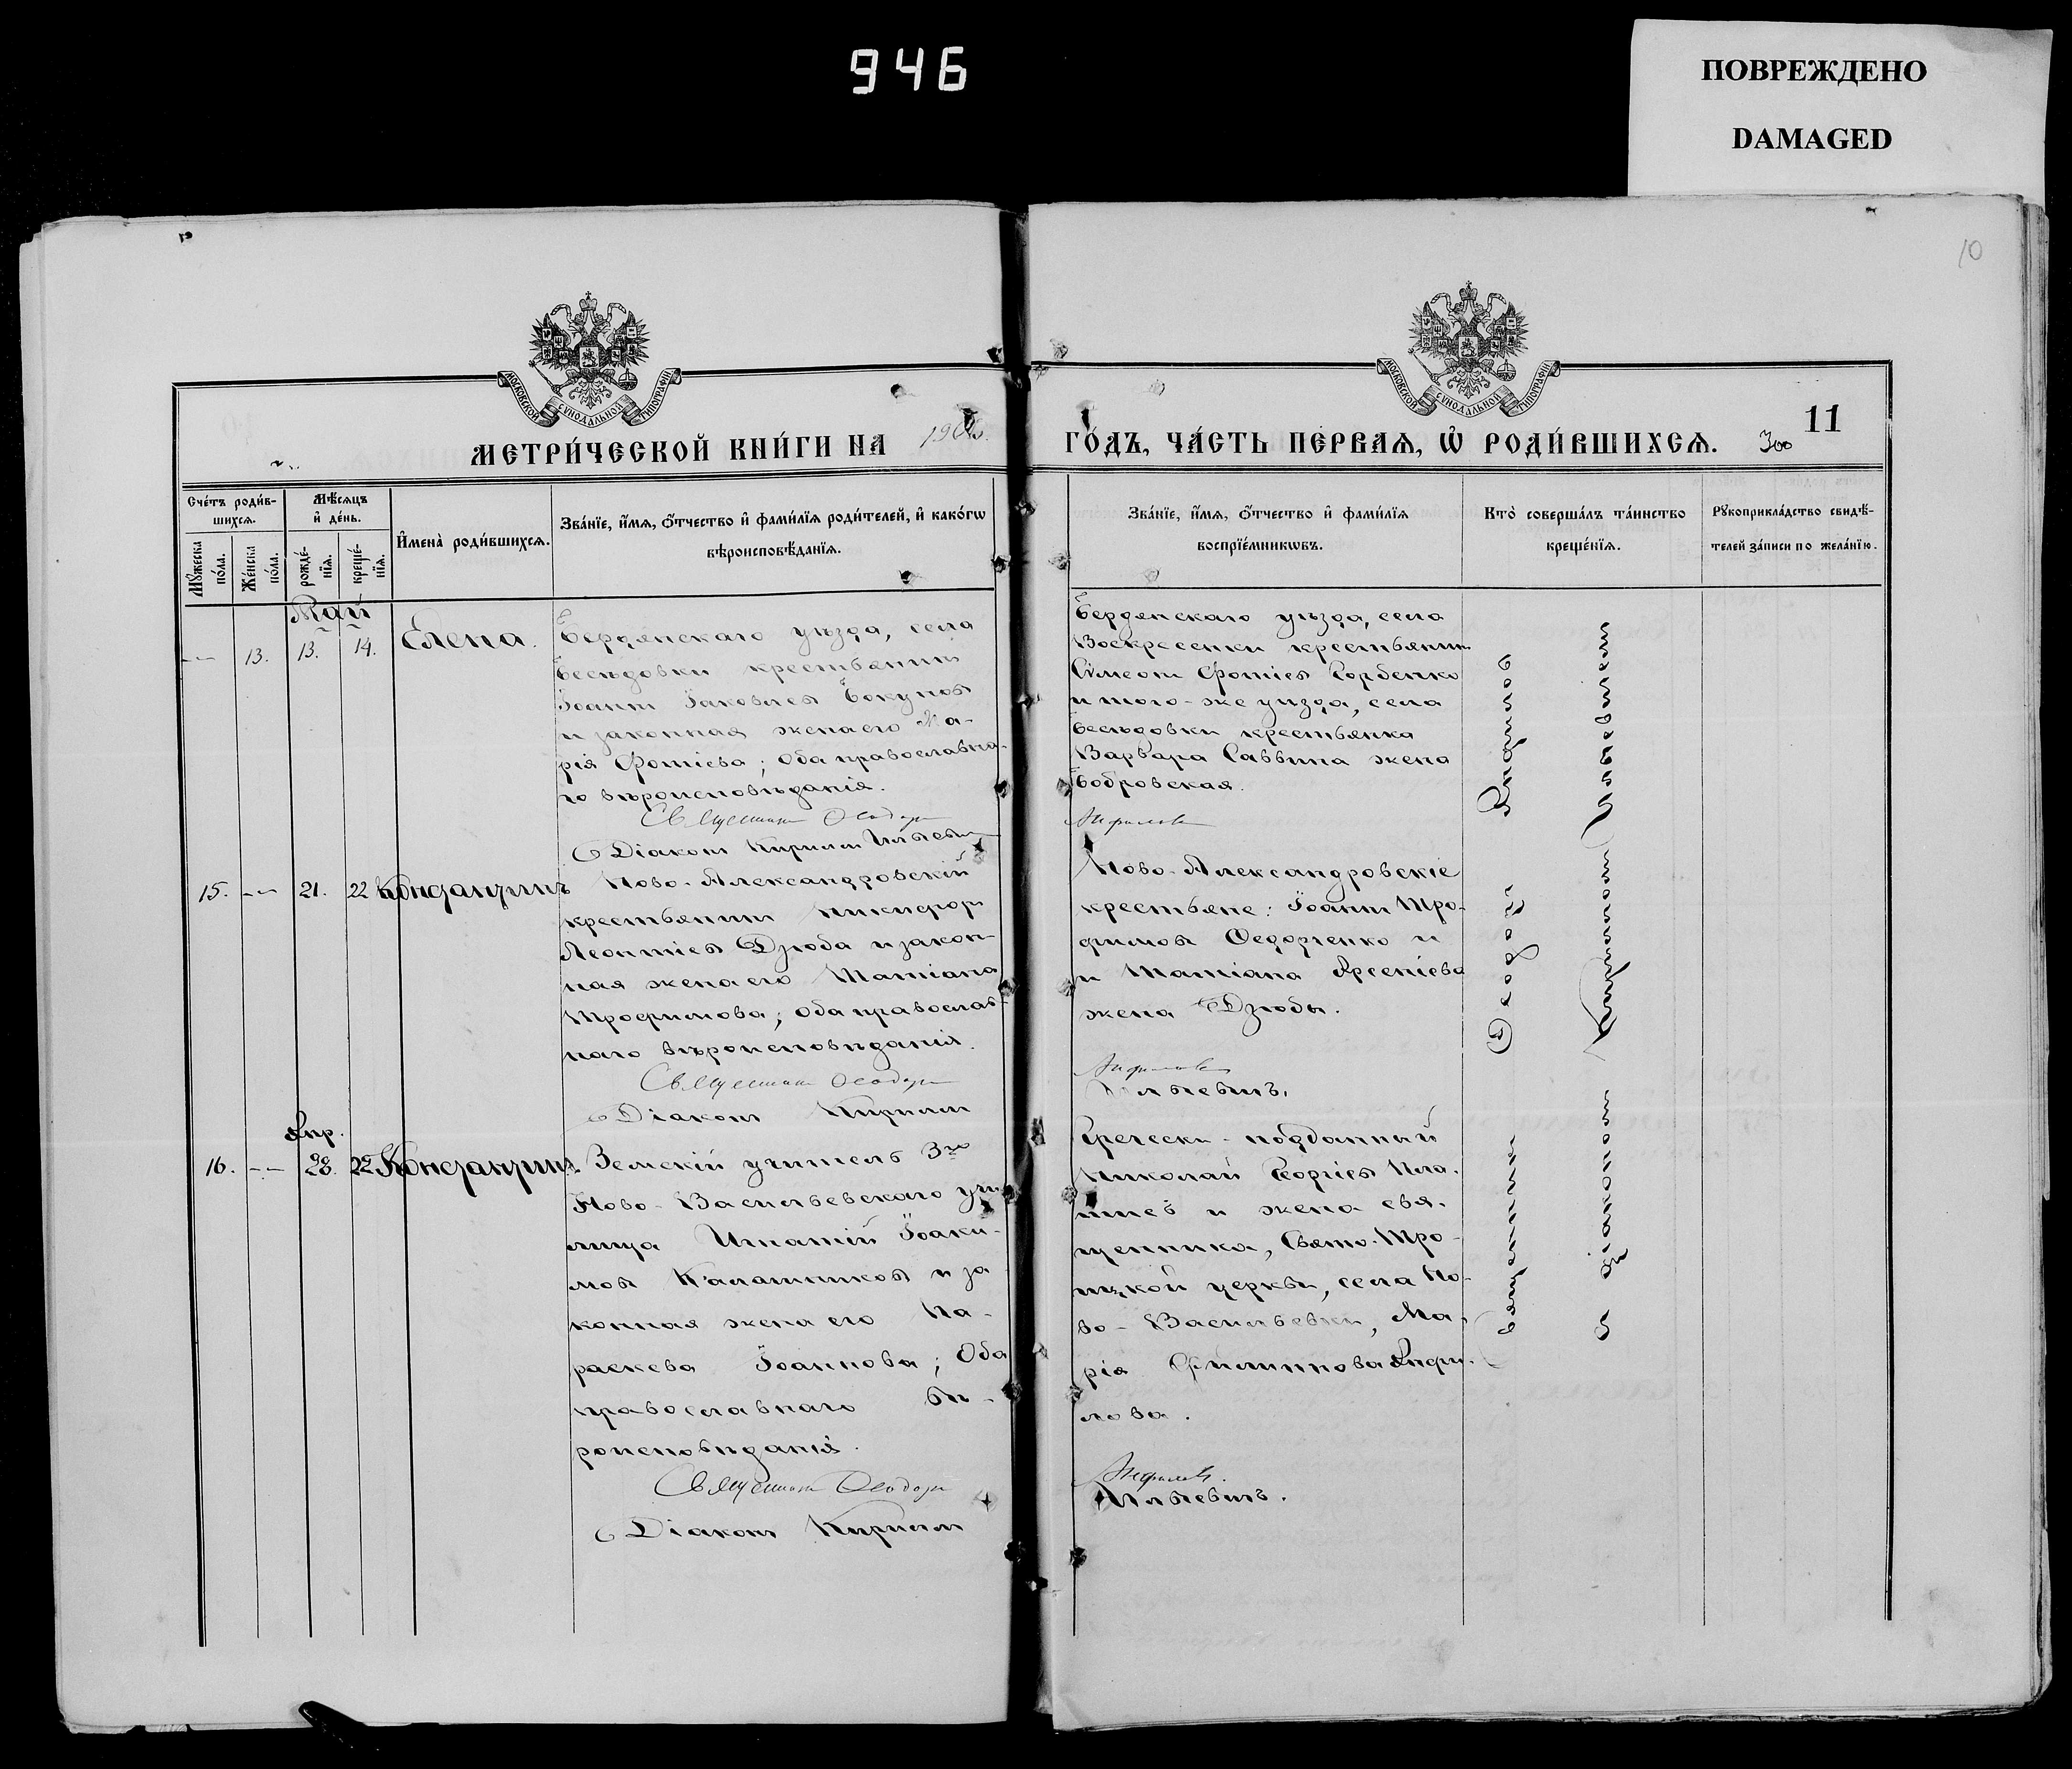 946
ПОВРЕЖДЕНО
DAMAGED
10
МОСКОВСКОЙ СѴНОДАЛЬНОЙ ТИПОГРАФІИ
МОСКОВСКОЙ СѴНОДАЛЬНОЙ ТИПОГРАФІИ
МЕТРИ́ЧЕСКОЙ КНИ́ГИ НА
ГО́ДЪ, ЧА́СТЬ ПЕ́РВАѦ, Ѡ҆ РОДИ́ВШИХСѦ.
11
Сче́тъ роди́в-
шихсѧ.
Мꙋ́жеска по́ла.
Же́нска по́ла.
Мѣ́сяцъ
и҆ де́нь.
рожде́-
нїѧ.
креще́-
нїѧ.
И҆мена̀ роди́вшихсѧ.
Зва́нїе, и҆́мѧ, ѻ҆́тчество и҆ фами́лїѧ роди́телей, и҆ како́гѡ
вѣроисповѣ́данїѧ.
Зва́нїе, и҆́мѧ, ѻ҆́тчество и҆ фами́лїѧ
воспрїе́мникѡвъ.
Кто̀ соверша́лъ та́инство
креще́нїѧ.
Рꙋкоприкла́дство свидѣ́-
телей за́писи по жела́нїю.
Май
-- 13. 13. 14. Елена.
Бердянскаго уѣзда, села
Бесѣдовки крестьянинъ
Іоаннъ Іаковлевъ Бокуновъ
и законная жена его Ма-
рія Фотіева; Оба православна-
го вѣроисповѣданія.
Священникъ Ѳеодоръ
Діаконъ Кириллъ Ильевичъ
Бердянскаго уѣзда, села
Воскресенки крестьянинъ
Сѵмеонъ Фотіевъ Горбенко
и того-же уѣзда, села
Бесѣдовки крестьянка
Варвара Саввина жена
Бобровская.
Анфиловъ
15. -- 21. 22 Констанҭинъ
Ново-Александровскій
крестьянинъ Никифоръ
Леонтіевъ Дзюба и закон-
ная жена его Татіана
Трофимова; Оба православ-
наго вѣроисповѣданія.
Священникъ Ѳеодоръ
Діаконъ Кириллъ
Ново-Александровскіе
крестьяне: Іоаннъ Тро-
фимовъ Ѳедорченко и
и Татіана Арсеніева
жена Дзюбы.
Анфиловъ
Ильевичъ.
Апр.
16. -- 28. 22 Константинъ.
Земскій учитель 3го
Ново-Васильевскаго учи-
лища Игнатій Іоаки-
мовъ Калашниковъ и за-
конная жена его Па-
раскева Іоаннова; Оба
православнаго вѣ-
роисповѣданія.
Священникъ Ѳеодоръ
Діаконъ Кириллъ
Гречески-подданный
Николай Георгіевъ
и жена свя-
щенника, Свято-Тро-
ицкой церкви, села Но-
во-Васильевки, Ма-
рія Филиппова Анфи-
лова.
Анфиловъ.
Ильевичъ.
Священникъ Ѳеодоръ Анфиловъ
съ діакономъ Кирилломъ Ильевичемъ